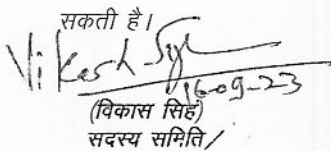 सकती है।
Vikash Sigh
16-09-23
(विकास सिंह)
सदस्य समिति /